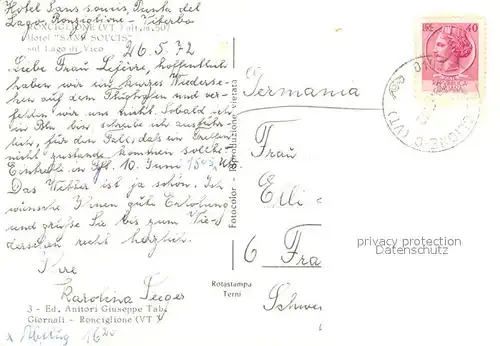 Hotel Sans soucis, Punta del
Lago, Ronciglione - Viterbo
RONCIGLIONE (VT)
Hotel "SANS SOUCIS"
sul Lago di Vico
26.5.72
Liebe Frau Lefèvre, hoffentlich
haben wir ein kurzes Wiederse-
hen auf dem Flughafen und ver-
fehlen wir uns nicht. Sobald ich
in Bln bin, schreibe ich ausführ-
lich, für den Fall, daß ein Treffen
nicht zustande kommen sollte.
10. Juni
Das Wetter ist ja schön. Ich
wünsche Ihnen gute Erholung
und grüße Sie bis zum Wie-
dersehen recht herzlich.
Ihre
Karolina Seeger
3 - Ed. Anitori Giuseppe Tab.
Giornali - Ronciglione (VT
x Abflug 16
Fotocolor - Riproduzione vietata
Rotastampa
Terni
Germania
Frau
Elli
6 Fra
Schwe
LIRE 40
privacy protection
Datenschutz